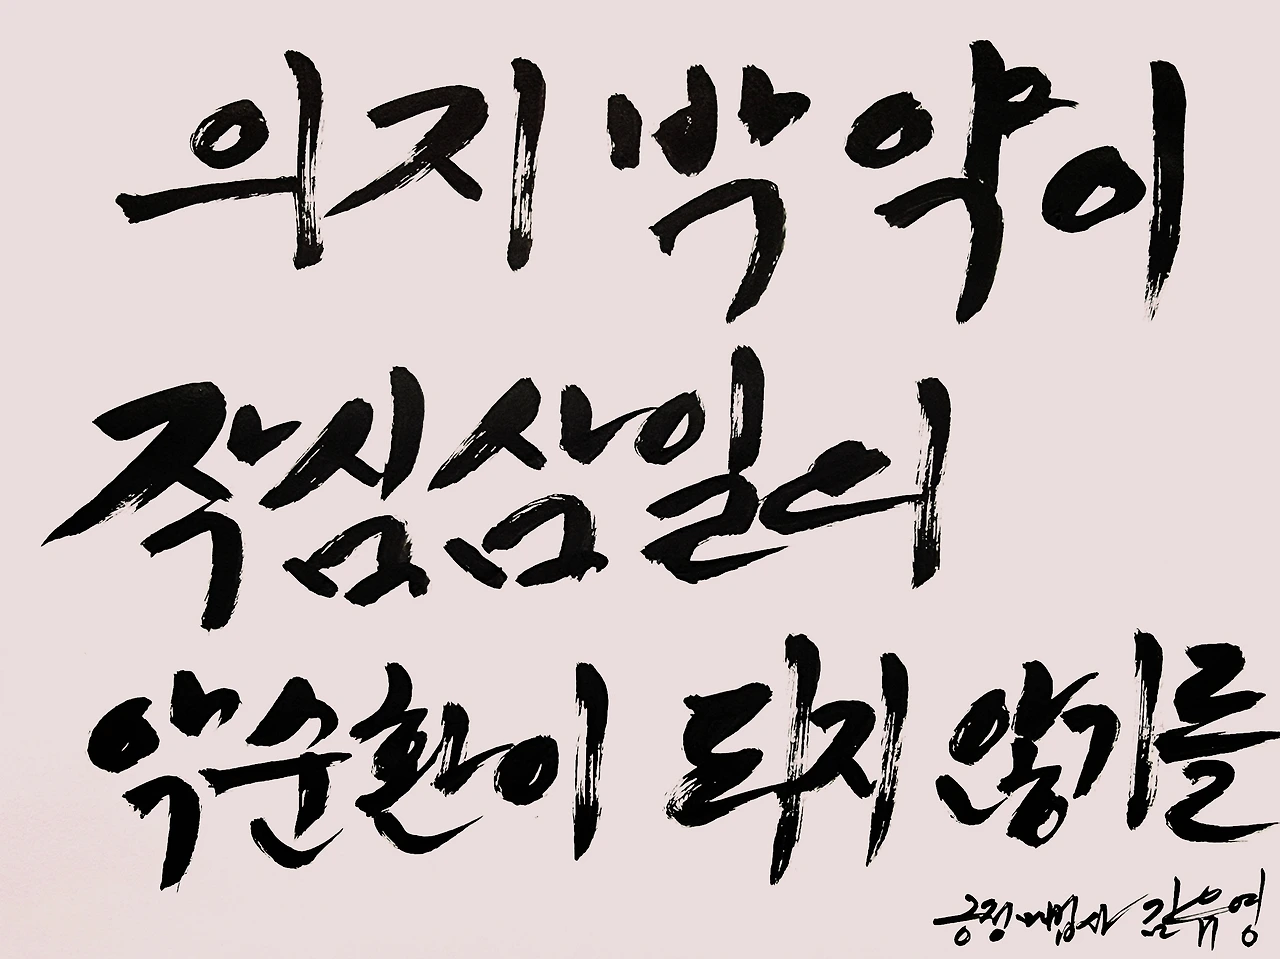 의지박약이
작심삼일의
악순환이 되지 않기를
긍정마법사 김유영